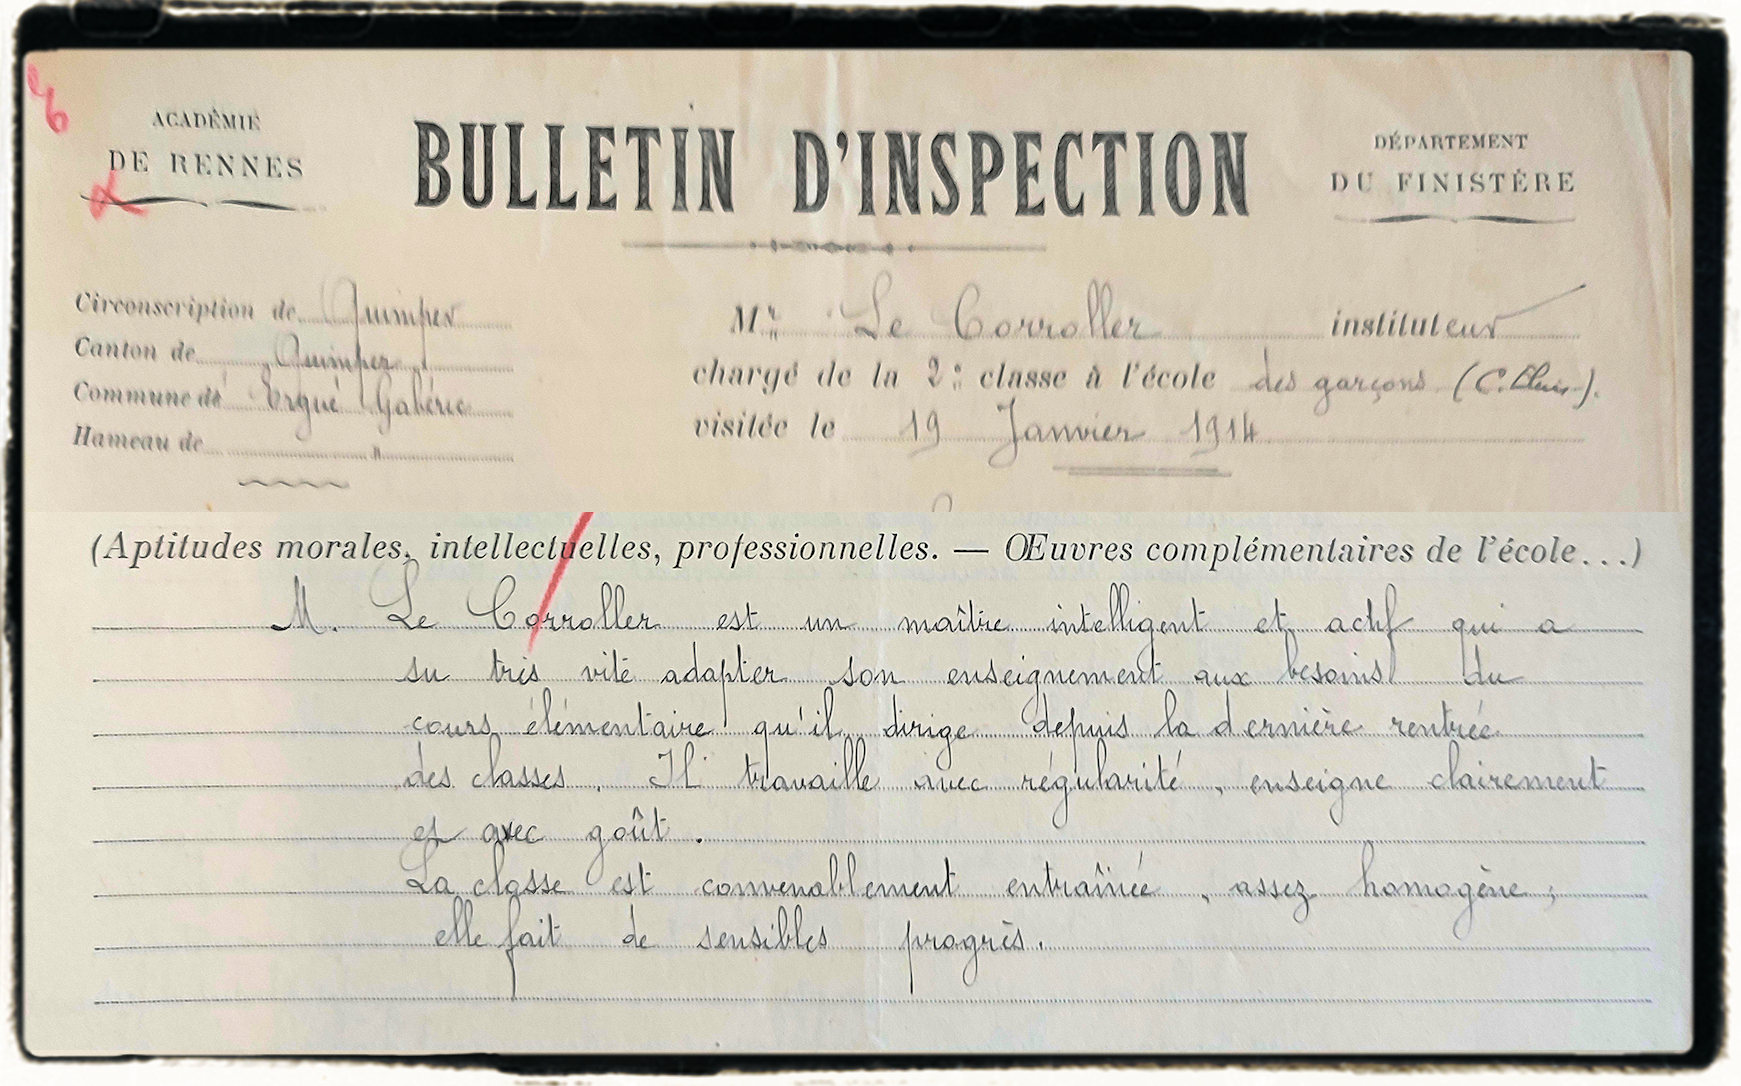 ACADÉMIE
DE RENNES
BULLETIN D'INSPECTION
DÉPARTEMENT
DU FINISTÈRE
Circonscription de Quimper
Canton de Quimper
Commune de Ergué Gabéric
Hameau de "
Mr Le Corroller instituteur
chargé de la 2e classe à l'école des garçons
visitée le 19 Janvier 1914
(Aptitudes morales, intellectuelles, professionnelles. — Œuvres complémentaires de l'école...)
M. Le Corroller est un maître intelligent et actif qui a
su très vite adapter son enseignement aux besoins du
cours élémentaire qu'il dirige depuis la dernière rentrée
des classes. Il travaille avec régularité, enseigne clairement
et avec goût.
La classe est convenablement entraînée, assez homogène;
elle fait de sensibles progrès.